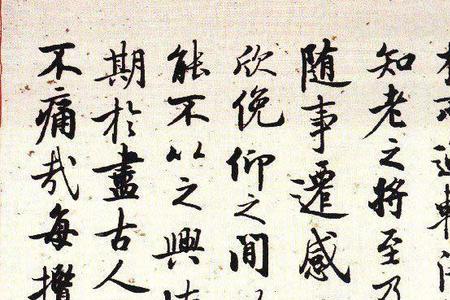 知老之將至
隨事遷感
欣俛仰之間
能不以之興
期於盡古人
不痛哉每攬